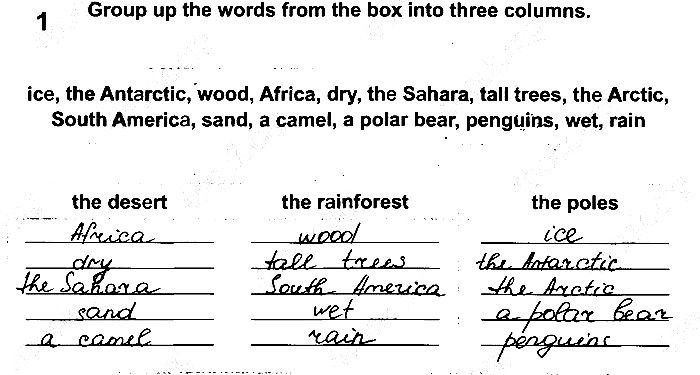 1 Group up the words from the box into three columns.
ice, the Antarctic, wood, Africa, dry, the Sahara, tall trees, the Arctic,
South America, sand, a camel, a polar bear, penguins, wet, rain
the desert the rainforest the poles
Africa wood ice
dry tall trees the Antarctic
the Sahara South America the Arctic
sand wet a polar bear
a camel rain penguins